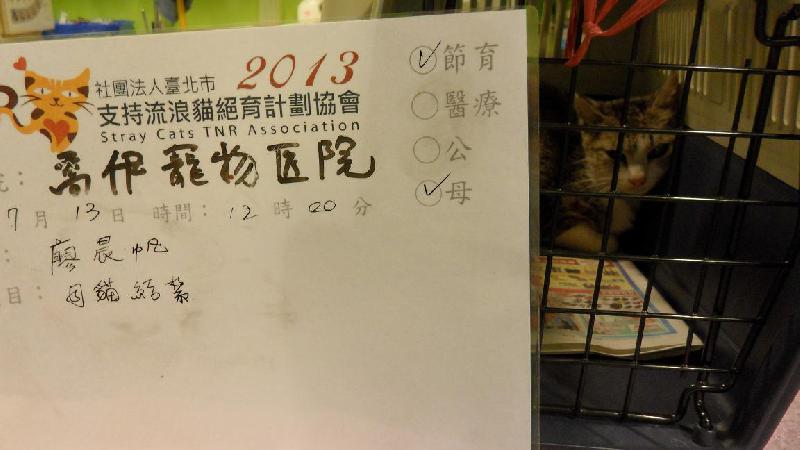 2013
社團法人臺北市
支持流浪貓絕育計劃協會
Stray Cats TNR Association
節育
醫療
公
母
：喬伊寵物医院
7月13日 時間：12時00分
：廖晨帆
目：母貓結紮